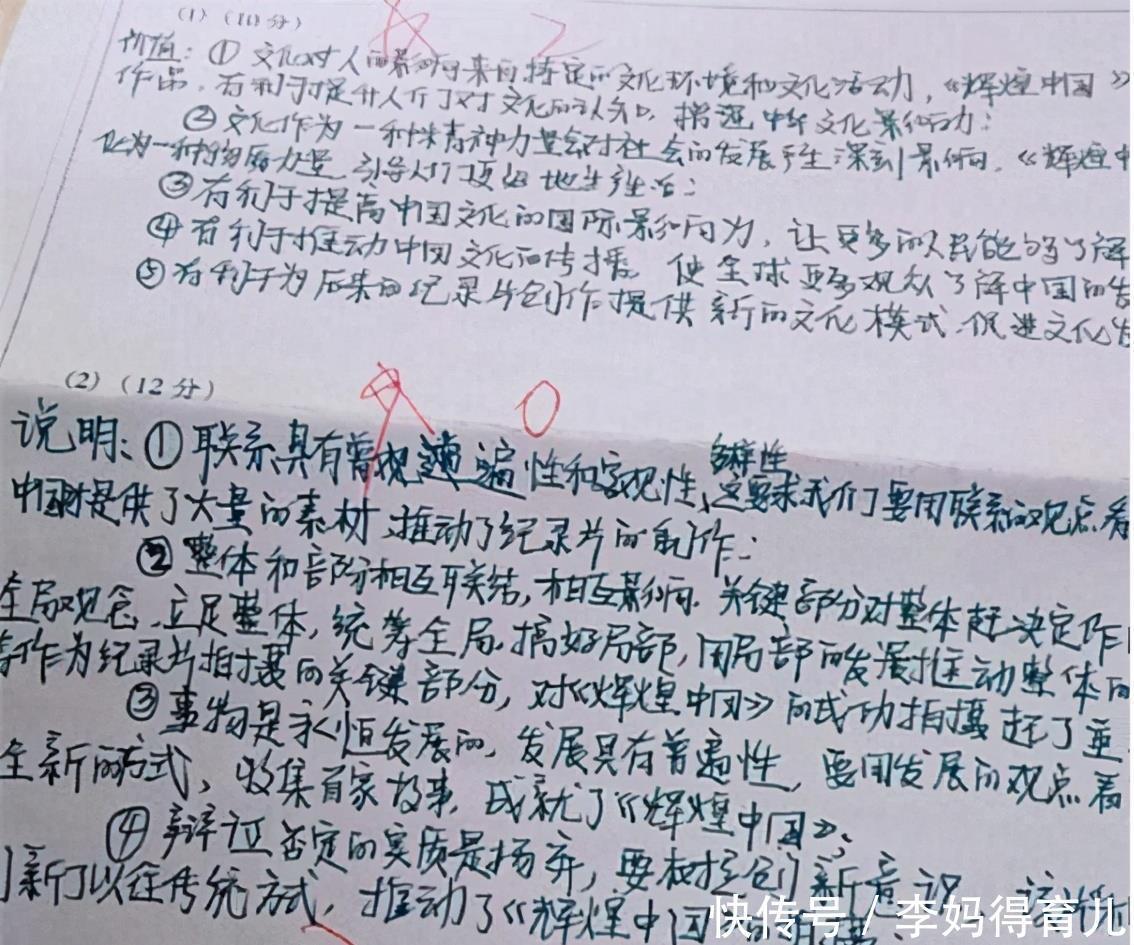 (1)(10分)
2
价值：①文化对人的影响来自特定的文化环境和文化活动，《辉煌中国》
作品，有利于提升人们对文化的认知，增强中华文化影响力；
②文化作为一种精神力量会对社会的发展产生深刻影响，《辉煌中
化为一种物质力量，引导人们更好地生活；
③有利于提高中国文化的国际影响力，让更多的人民能够了解
④有利于推动中国文化的传播，使全球更多观众了解中国的发
⑤有利于为后来的纪录片创作提供新的文化模式，促进文化发
(2)(12分)
0
多样性
说明：①联系具有普遍性和客观性、这要求我们要用联系的观点看
中国提供了大量的素材，推动了纪录片的制作；
②整体和部分相互联结，相互影响.关键部分对整体起决定作
全局观念，立足整体，统筹全局，搞好局部，用局部的发展推动整体的
作为纪录片拍摄的关键部分，对《辉煌中国》的成功拍摄起了重
③事物是永恒发展的，发展具有普遍性，要用发展的观点看
全新的方式，收集百家故事，成就了《辉煌中国》；
④辩证否定的实质是扬弃，要树立创新意识，该
新了以往传统方式，推动了《辉煌中国
快传号 / 李妈得育儿